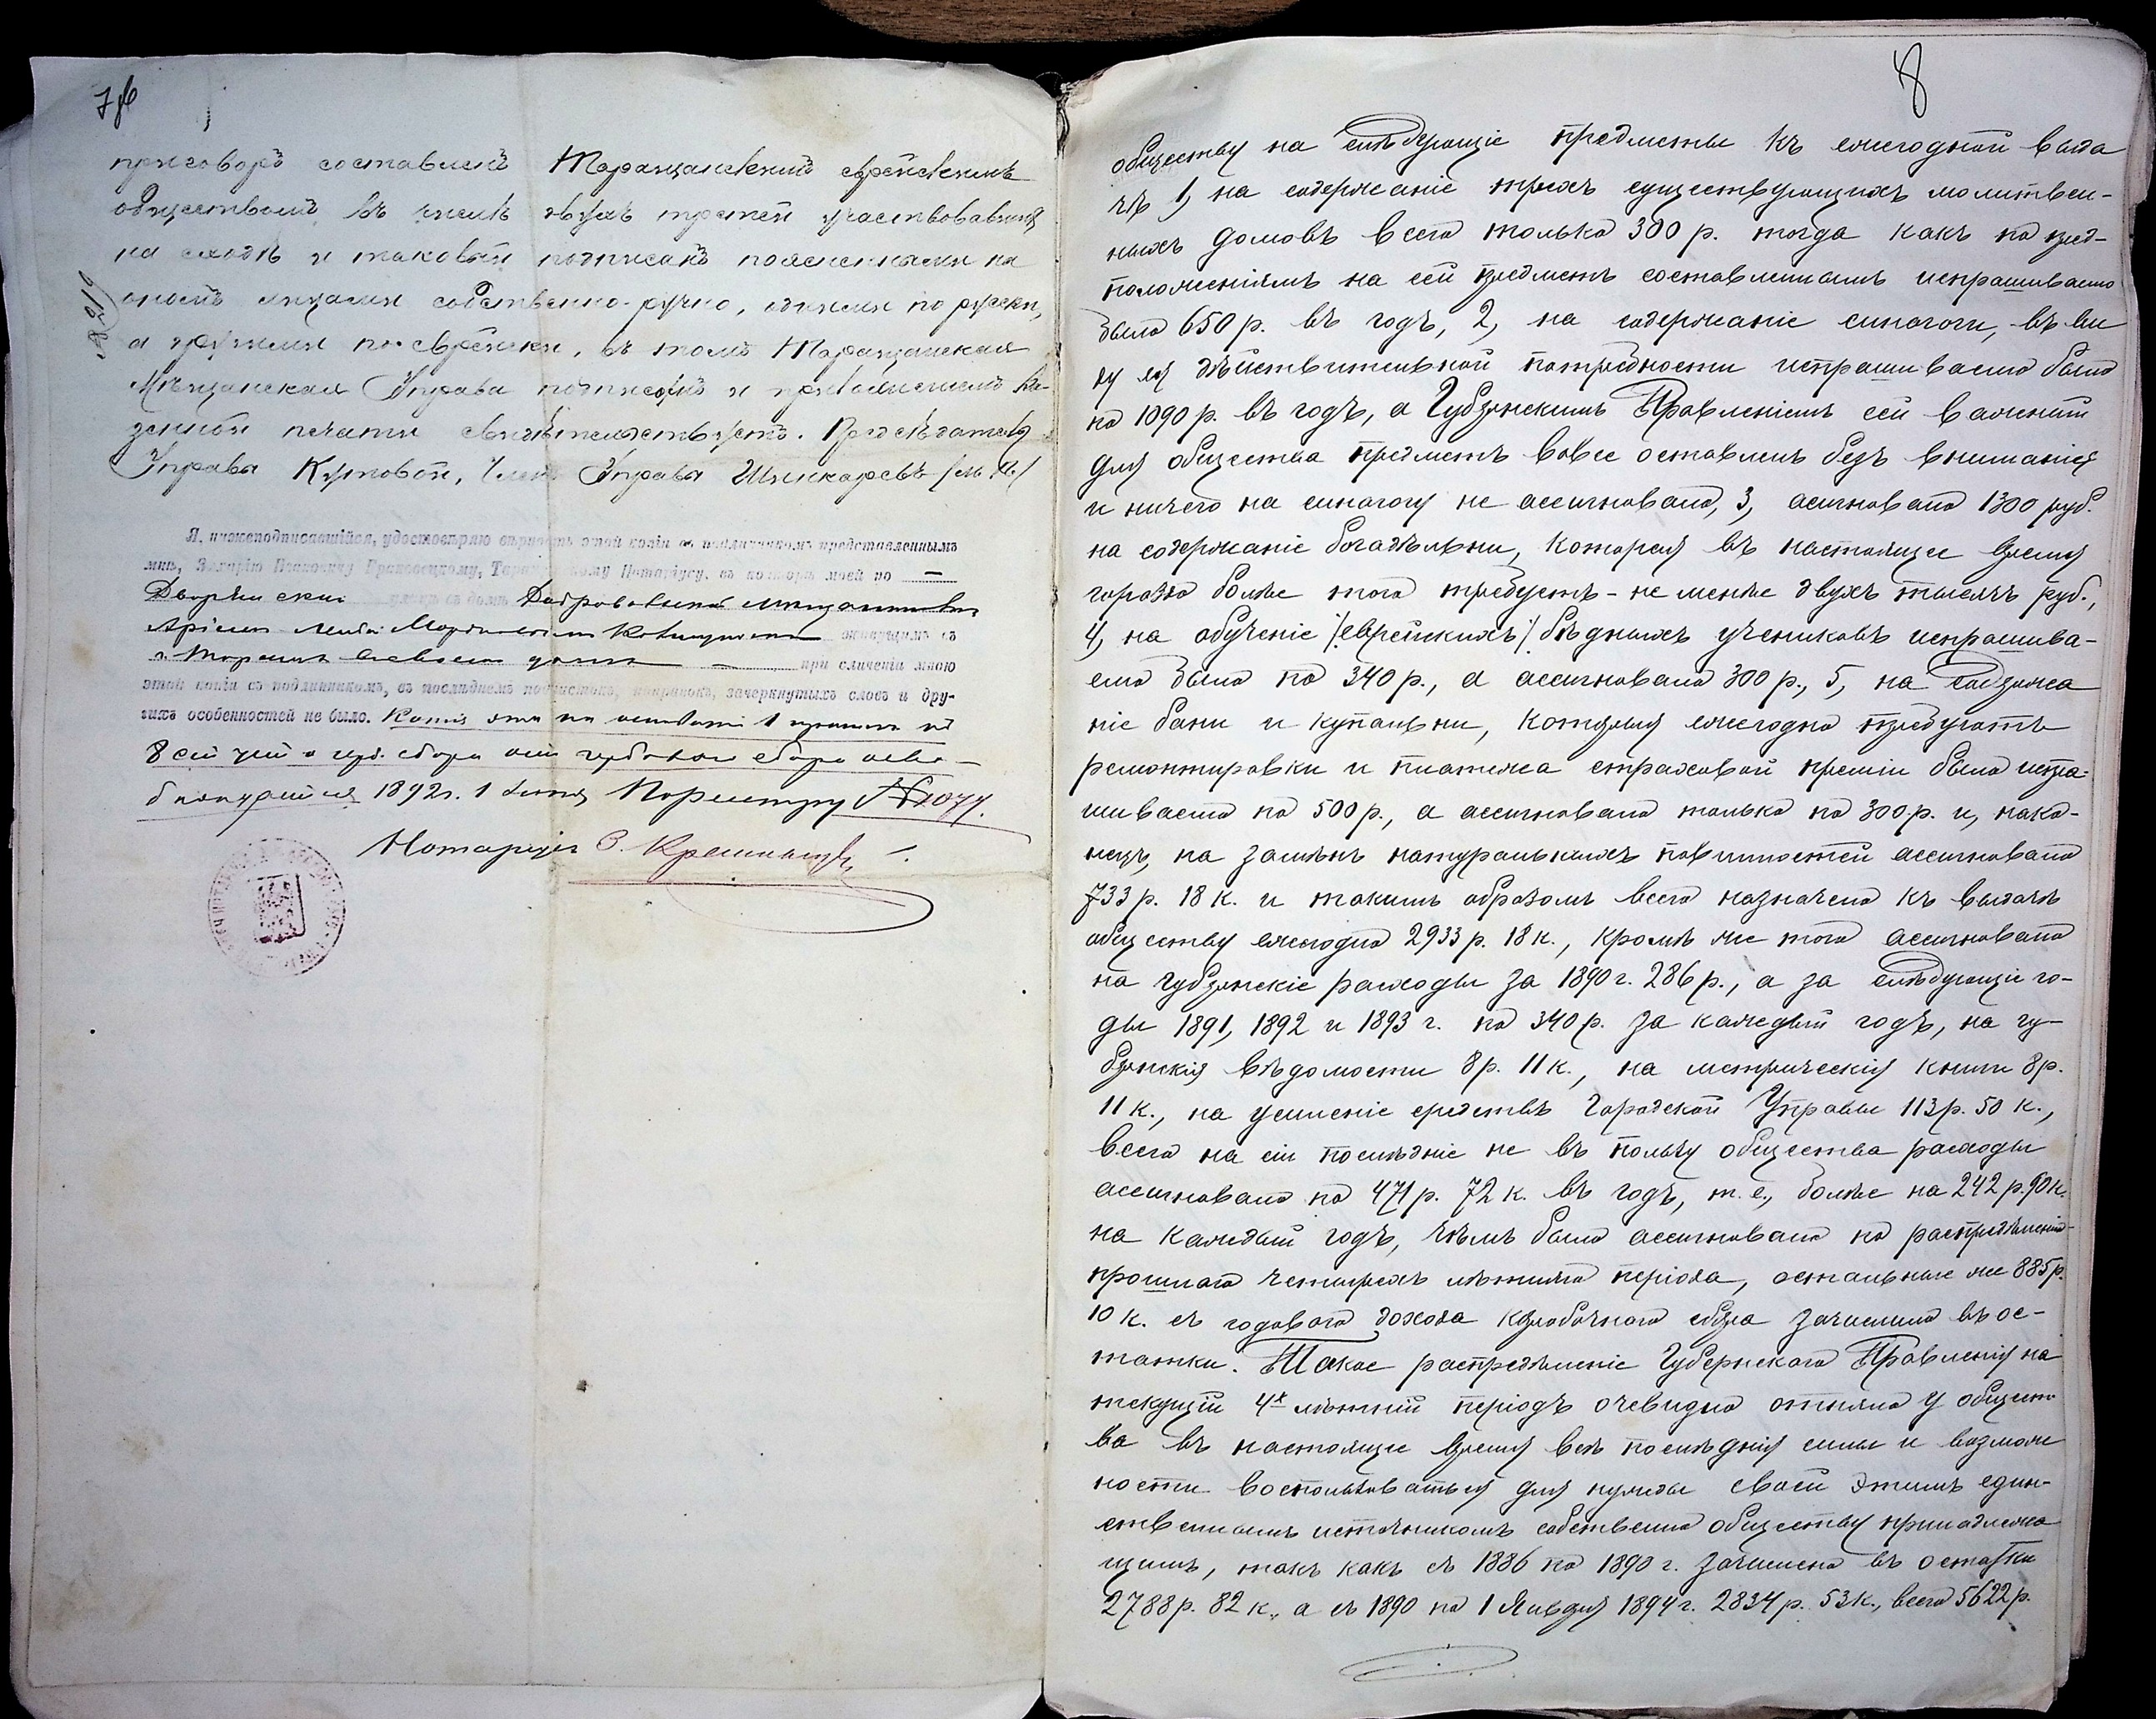 7 об
приговоръ составленъ Таращанскимъ еврейскимъ
обществомъ въ числѣ двухъ третей участвовавшихъ
на сходѣ и таковый подписанъ поясненными на
ономъ лицами собственно-ручно, одними по русски,
а другими по еврейски, въ томъ Таращанская
Мѣщанская Управа подписомъ и приложеніемъ ка-
зенной печати свидѣтельствуетъ. Предсѣдатель
Управы Куповой, Членъ Управы Шинкаревъ (м. п.)
Я, нижеподписавшійся, удостовѣряю вѣрность этой копіи съ подлинникомъ представленнымъ
мнѣ, Захарію Ивановичу Таращанскому Нотаріусу, въ конторѣ моей по —
Дворянской улицѣ въ домѣ мѣщаниномъ
живущимъ въ
г. Таращѣ своемъ домѣ — при сличеніи мною
этой копіи съ подлинникомъ, въ послѣднемъ подчистокъ, приписокъ, зачеркнутыхъ словъ и дру-
гихъ особенностей не было. Копія эта на основаніи 1 пункта
сбора отъ гербоваго сбора осво-
бождается 1892 г. 1 По реестру № 2077.
Нотаріусъ З.
8
обществу на слѣдующіе предметы къ ежегодной выда
чѣ 1, на содержаніе трехъ существующихъ молитвен-
ныхъ домовъ всего только 300 р. тогда какъ по пред-
положеніямъ на сей предметъ составленнымъ испрашиваемо
было 650 р. въ годъ, 2, на содержаніе синагоги, въ ви
ду ея дѣйствительной потребности испрашиваемо было
по 1090 р. въ годъ, а Губернскимъ Правленіемъ сей важный
для общества предметъ вовсе оставленъ безъ вниманія
и ничего на синагогу не ассигновано, 3, асигновано 1300 руб.
на содержаніе богадѣльни, которая въ настоящее время
гораздо болѣе того требуетъ - не менѣе двухъ тысячъ руб.,
4, на обученіе /еврейскихъ/ бѣдныхъ учениковъ испрашива-
емо было по 340 р., а ассигновано 300 р., 5, на содержа
ніе бани и купальни, которыя ежегодно требуютъ
ремонтировки и платежа страховой преміи было испра-
шиваемо по 500 р., а ассигновано только по 300 р. и, нако-
нецъ, на замѣнъ натуральныхъ повинностей ассигновано
733 р. 18 к. и такимъ образомъ всего назначено къ выдачѣ
обществу ежегодно 2933 р. 18 к., кромѣ же того ассигновано
на губернскіе расходы за 1890 г. 286 р., а за слѣдующіе го-
ды 1891, 1892 и 1893 г. по 340 р. за каждый годъ, на гу-
бернскія вѣдомости 8 р. 11 к., на метрическія книги 8 р.
11 к., на усиленіе средствъ Городской Управы 113 р. 50 к.,
всего на сіи послѣдніе не въ пользу общества расходы
ассигновано по 471 р. 72 к. въ годъ, т. е., болѣе на 242 р. 90 к.
на каждый годъ, чѣмъ было ассигновано по распредѣленію
прошлаго четырехъ лѣтняго періода, остальные же 885 р.
10 к. съ годоваго дохода коробочнаго сбора зачислила въ ос-
татки. Такое распредѣленіе Губернскаго Правленія на
текущій 4х лѣтній періодъ очевидно отняло у общест
ва въ настоящее время всѣ послѣднія силы и возмож
ности воспользоваться для нужды своей этимъ един-
ственнымъ источникомъ собственно обществу принадлежа
щимъ, такъ какъ съ 1886 по 1890 г. зачислено въ остатки
2788 р. 82 к., а съ 1890 по 1 Января 1894 г. 2834 р. 53 к., всего 5622 р.